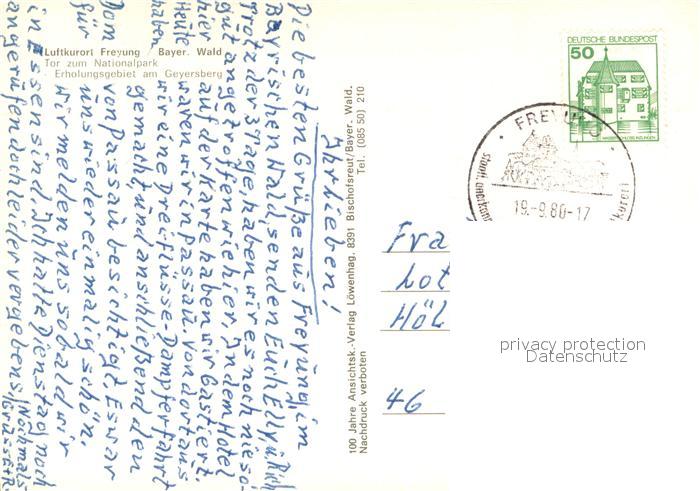 Luftkurort Freyung / Bayer. Wald
Tor zum Nationalpark
Erholungsgebiet am Geyersberg
Ihr lieben!
Die besten Grüße aus Freyung im
Bayrischen Wald, senden Euch Elly, u. Rich
Trotz der 3 Tage, haben wir es noch nie so
gut angetroffen wie hier. In dem Hotel
hier auf der Karte haben wir Gastiert.
Heute waren wir in Passau. Von dort aus
haben wir eine Dreiflüsse-Dampferfahrt
gemacht, und anschließend den
Dom von Passau besichtigt. Es war
für uns wieder einmalig schön
wir melden uns sobald wir
in Essen sind. Ich hatte Dienstag noch
angerufen doch leider vergebens
Nochmals
Grüsse E + R.
100 Jahre Ansichtsk.-Verlag Löwenhag, 8391 Bischofsreut/Bayer. Wald,
Nachdruck verboten
Tel. (085 50) 210
DEUTSCHE BUNDESPOST
50
FREYUNG
19.-9.80-17
Fra
Lot
Höl
46
privacy protection
Datenschutz